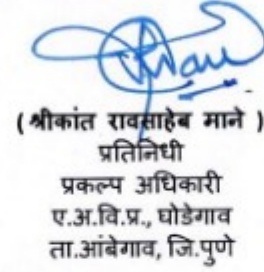 ( श्रीकांत रावसाहेब माने )
प्रतिनिधी
प्रकल्प अधिकारी
ए.अ.वि.प्र., घोडेगाव
ता.आंबेगाव, जि.पुणे